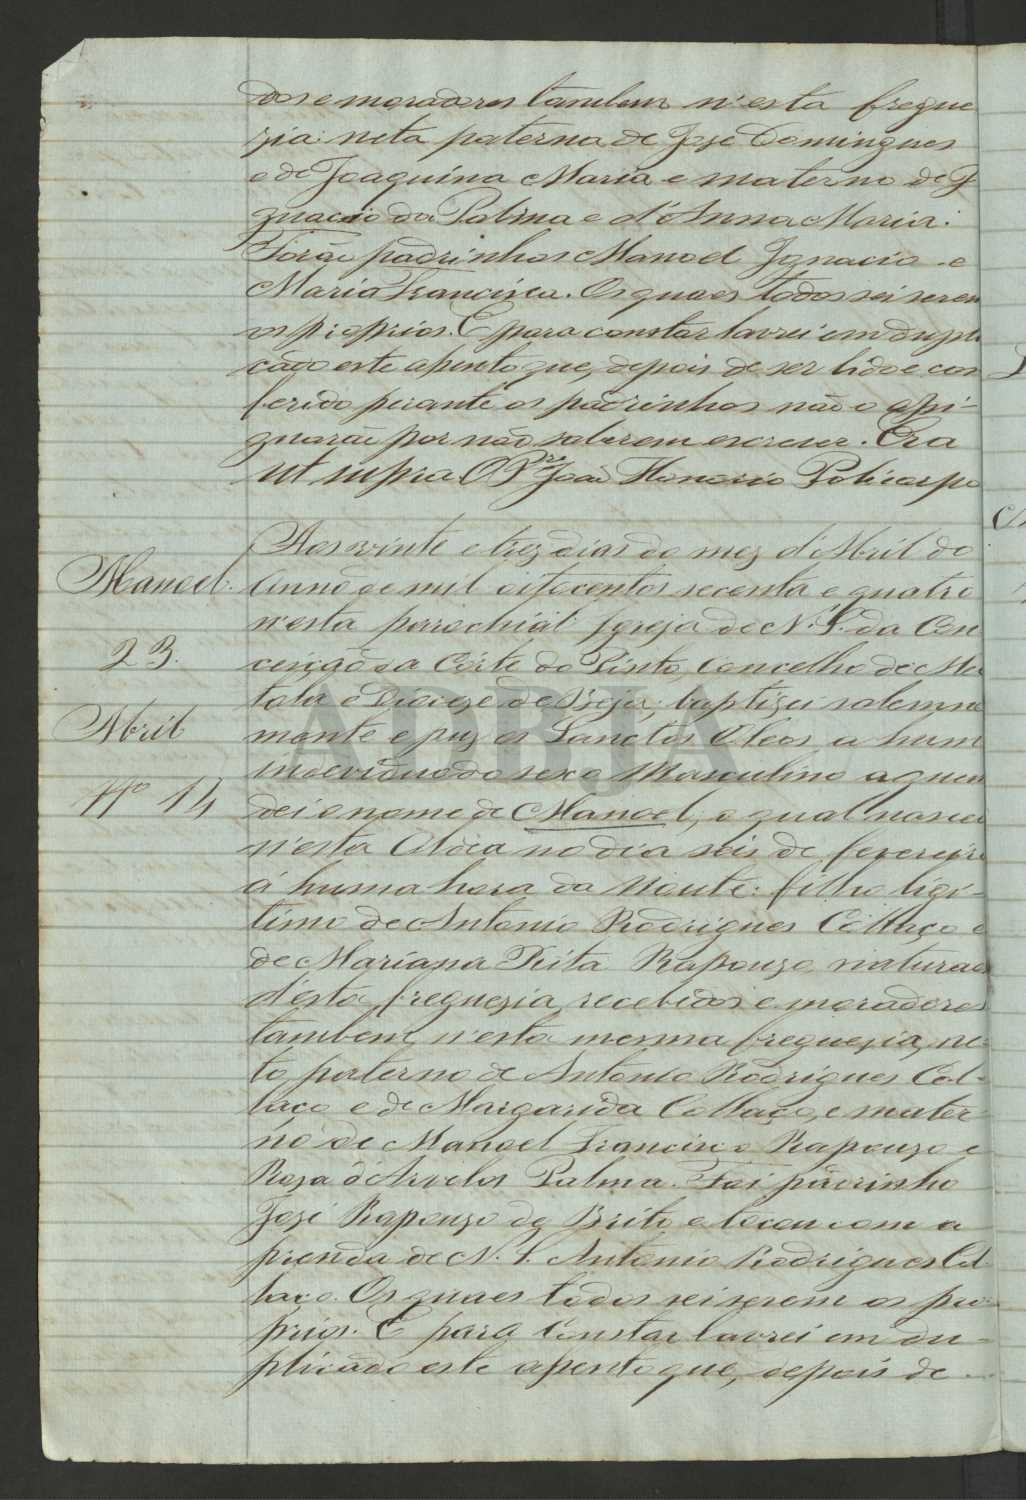 dos e moradores tambem n'esta fregue
zia: neta paterna de José Domingues
e de Joaquina Maria e materno de I
gnacio da Palma e d'Anna Maria.
Forão padrinhos Manoel Ignacio e
Maria Francisca. Os quaes todos sei serem
os proprios. E para constar lavrei em dupli
cado este assento que, depois de ser lido e con
ferido perante os padrinhos não o assi-
gnarão por não saberem escrever. Era
ut supra O Pre João Honorio Policarpo
Manoel.
23.
Abril
No 14
Aos vinte e trez dias do mez d'Abril do
anno de mil oitocentos secenta e quatro
n'esta parochial Igreja de N. S. da Con
ceição da Côrte do Pinto, Concelho de Me
tola e Diocese de Beja; baptizei solemne
mente e puz os Sanctos Oleos a hum
individuo do sexo Masculino a quem
dei o nome de Manoel, o qual nasceu
n'esta Aldea no dia seis de fevereiro
á huma hora da Noute: filho ligi-
timo de Antonio Rodrigues Collaço e
de Mariana Rita Rapouzo naturaes
d'esta freguezia, recebidos e moradores
tambem n'esta mesma freguezia, ne-
to paterno de Antonio Rodrigues Col-
laço e de Margarida Collaço, e mater
no de Manoel Francisco Rapouzo e
Roza d'Arvelos Palma. Foi padrinho
José Rapouzo de Brito e tocou com a
prenda de N. S. Antonio Rodrigues Col
laço. Os quaes todos sei serem os pro-
prios. E para constar lavrei em du-
plicado este assento que, depois de
ADBJA